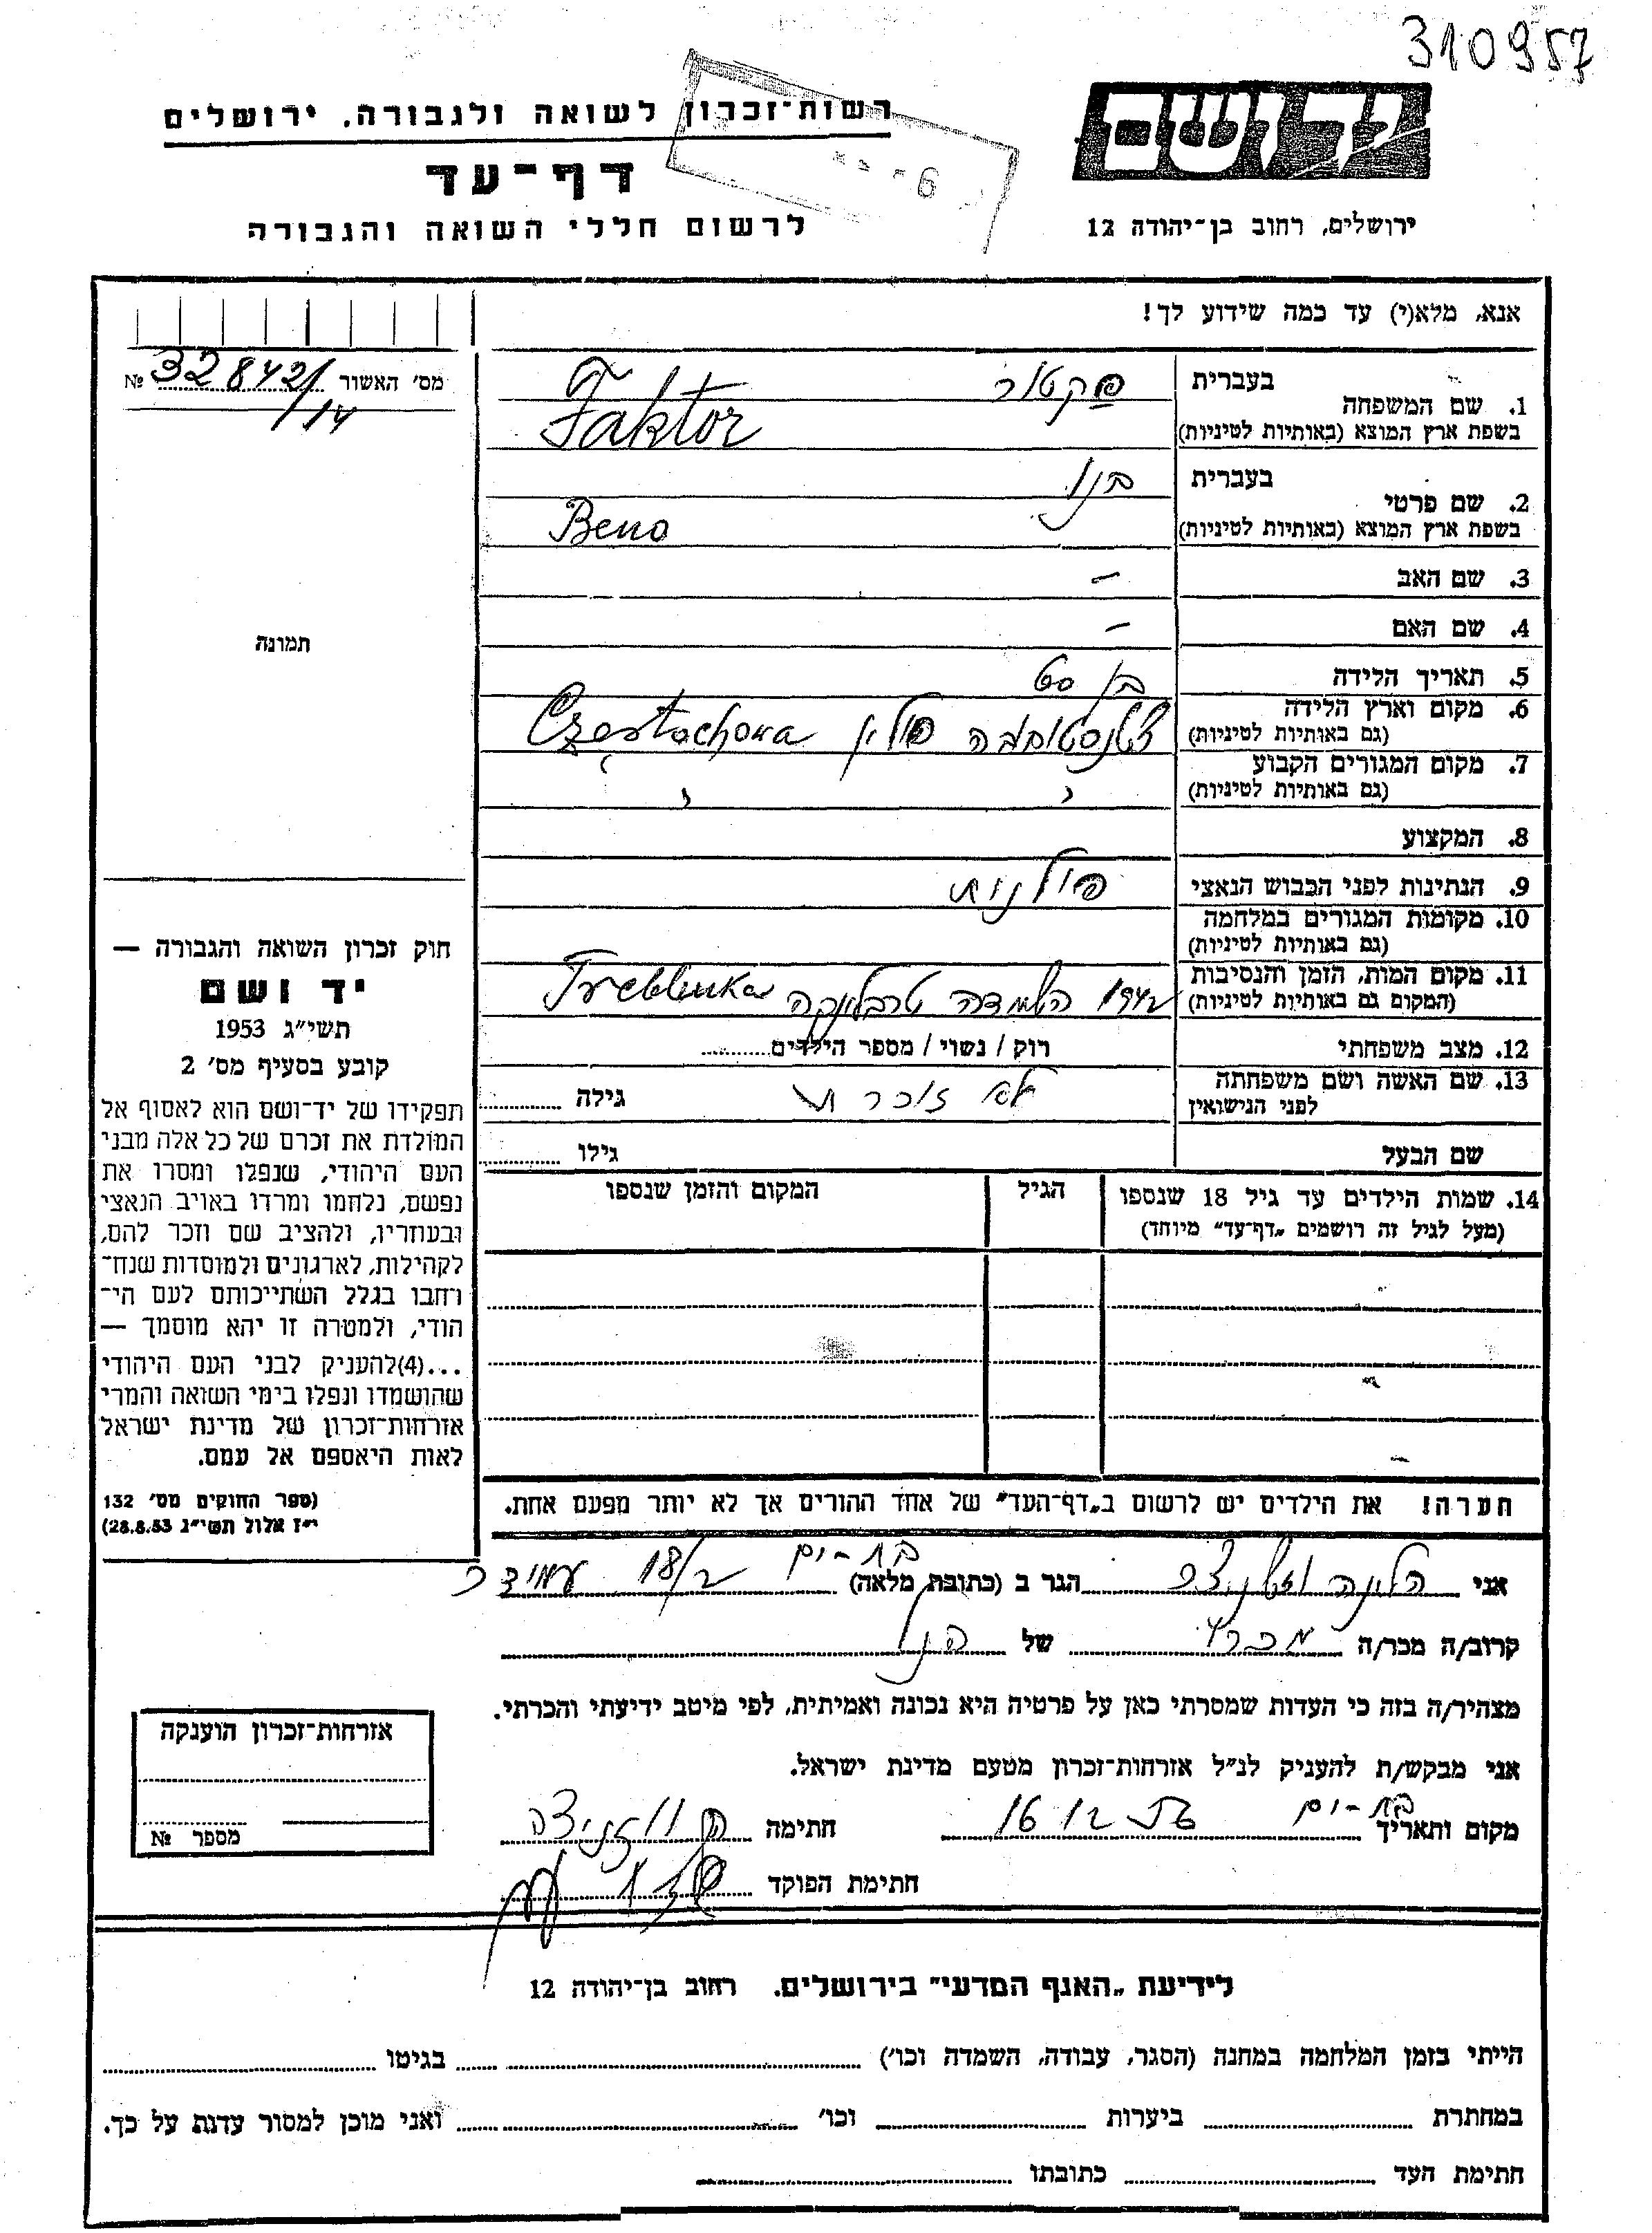 310957
יד ושם
ירושלים, רחוב בן־יהודה 12
רשות־זכרון לשואה ולגבורה, ירושלים
דף־עד
לרשום חללי השואה והגבורה
6
אנא, מלא(י) עד כמה שידוע לך!
מס׳ האשור № 32842/
/14
תמונה
1. שם המשפחה
בעברית פקטור
בשפת ארץ המוצא (באותיות לטיניות) Faktor
2. שם פרטי
בעברית בנו
בשפת ארץ המוצא (באותיות לטיניות) Beno
3. שם האב –
4. שם האם –
5. תאריך הלידה בן 60
6. מקום וארץ הלידה
(גם באותיות לטיניות) פולין Częstochowa
7. מקום המגורים הקבוע
(גם באותיות לטיניות)
8. המקצוע
9. הנתינות לפני הכבוש הנאצי פולנית
10. מקומות המגורים במלחמה
(גם באותיות לטיניות)
11. מקום המות, הזמן והנסיבות
(המקום גם באותיות לטיניות) 1942 השמדה טרבלינקה Treblinka
12. מצב משפחתי רוק / נשוי / מספר הילדים
13. שם האשה ושם משפחתה
לפני הנישואין לא זוכרת גילה
שם הבעל גילו
14. שמות הילדים עד גיל 18 שנספו
(מעל לגיל זה רושמים „דף־עד״ מיוחד)
הגיל
המקום והזמן שנספו
הערה! את הילדים יש לרשום ב„דף־העד״ של אחד ההורים אך לא יותר מפעם אחת.
חוק זכרון השואה והגבורה —
יד ושם
תשי״ג 1953
קובע בסעיף מס׳ 2
תפקידו של יד־ושם הוא לאסוף אל
המולדת את זכרם של כל אלה מבני
העם היהודי, שנפלו ומסרו את
נפשם, נלחמו ומרדו באויב הנאצי
ובעוזריו, ולהציב שם וזכר להם,
לקהילות, לארגונים ולמוסדות שנח־
רחבו בגלל השתייכותם לעם הי־
הודי, ולמטרה זו יהא מוסמך —
...(4)להעניק לבני העם היהודי
שהושמדו ונפלו בימי השואה והמרי
אזרחות־זכרון של מדינת ישראל
לאות היאספם אל עמם.
(ספר החוקים מס׳ 132
י״ז אלול תשי״ג 28.8.53)
בת-ים
אני הלינה הגר ב (כתובת מלאה) 18/2 עמידר
קרוב/ה מכר/ה מכרה של הנ״ל
מצהיר/ה בזה כי העדות שמסרתי כאן על פרטיה היא נכונה ואמיתית, לפי מיטב ידיעתי והכרתי.
אני מבקש/ת להעניק לנ״ל אזרחות־זכרון מטעם מדינת ישראל.
מקום ותאריך בת-ים 16 12 חתימה
חתימת הפוקד
אזרחות־זכרון הוענקה
מספר №
לידיעת „האגף המדעי״ בירושלים. רחוב בן־יהודה 12
הייתי בזמן המלחמה במחנה (הסגר, עבודה, השמדה וכו׳) בגיטו
במחתרת ביערות וכו׳ ואני מוכן למסור עדות על כך.
חתימת העד כתובתו